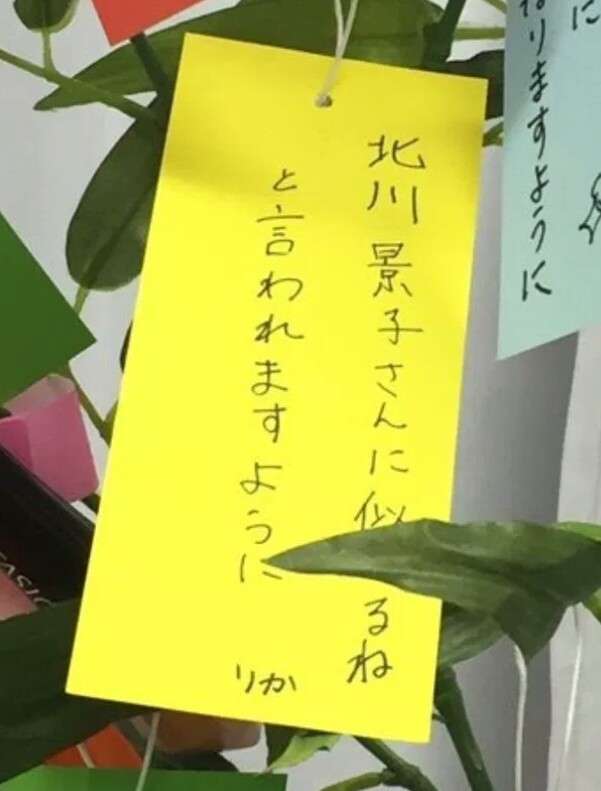 北川景子さんに似るね
と言われますように
りか
りますように
に